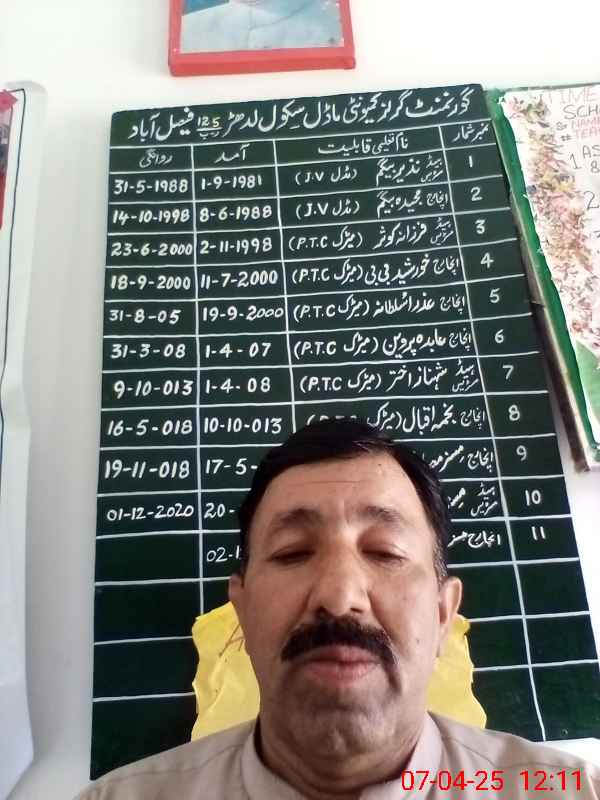 گورنمنٹ گرلز کمیونٹی ماڈل سکول لدھڑ 125 ر-ب فیصل آباد
نمبر شمار نام تعلیمی قابلیت آمد روانگی
1 ہیڈ مسٹریس نذیر بیگم (مڈل J.V) 1-9-1981 31-5-1988
2 انچارج مجیدہ بیگم (مڈل J.V) 8-6-1988 14-10-1998
3 ہیڈ مسٹریس فرزانہ کوثر (میٹرک P.T.C) 2-11-1998 23-6-2000
4 انچارج خورشید بی بی (میٹرک P.T.C) 11-7-2000 18-9-2000
5 انچارج عذرا سلطانہ (میٹرک P.T.C) 19-9-2000 31-8-05
6 انچارج عابدہ پروین (میٹرک P.T.C) 1-4-07 31-3-08
7 ہیڈ مسٹریس شہناز اختر (میٹرک P.T.C) 1-4-08 9-10-013
8 انچارج نجمہ اقبال (میٹرک 10-10-013 16-5-018
9 انچارج مسز 17-5- 19-11-018
10 ہیڈ مسٹریس 20- 01-12-2020
11 انچارج مسز 02-
TIME
SCH
NAME
TEA
1 AS
07-04-25 12:11